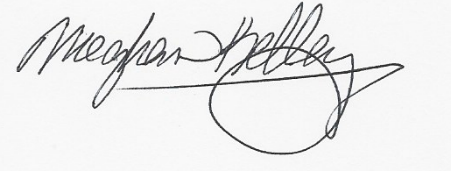 Meghan Kelley